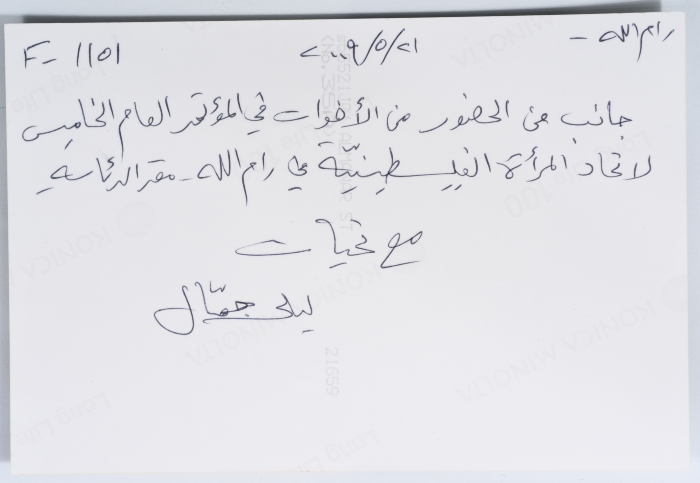 رام الله - ٢٠٠٩/٥/٢١ F-1101
جانب من الحضور من الأخوات في المؤتمر العام الخامس
لاتحاد المرأة الفلسطينيّة في رام الله - مقر الرئاسة
مع تحيات
ليلى جمّال
21659